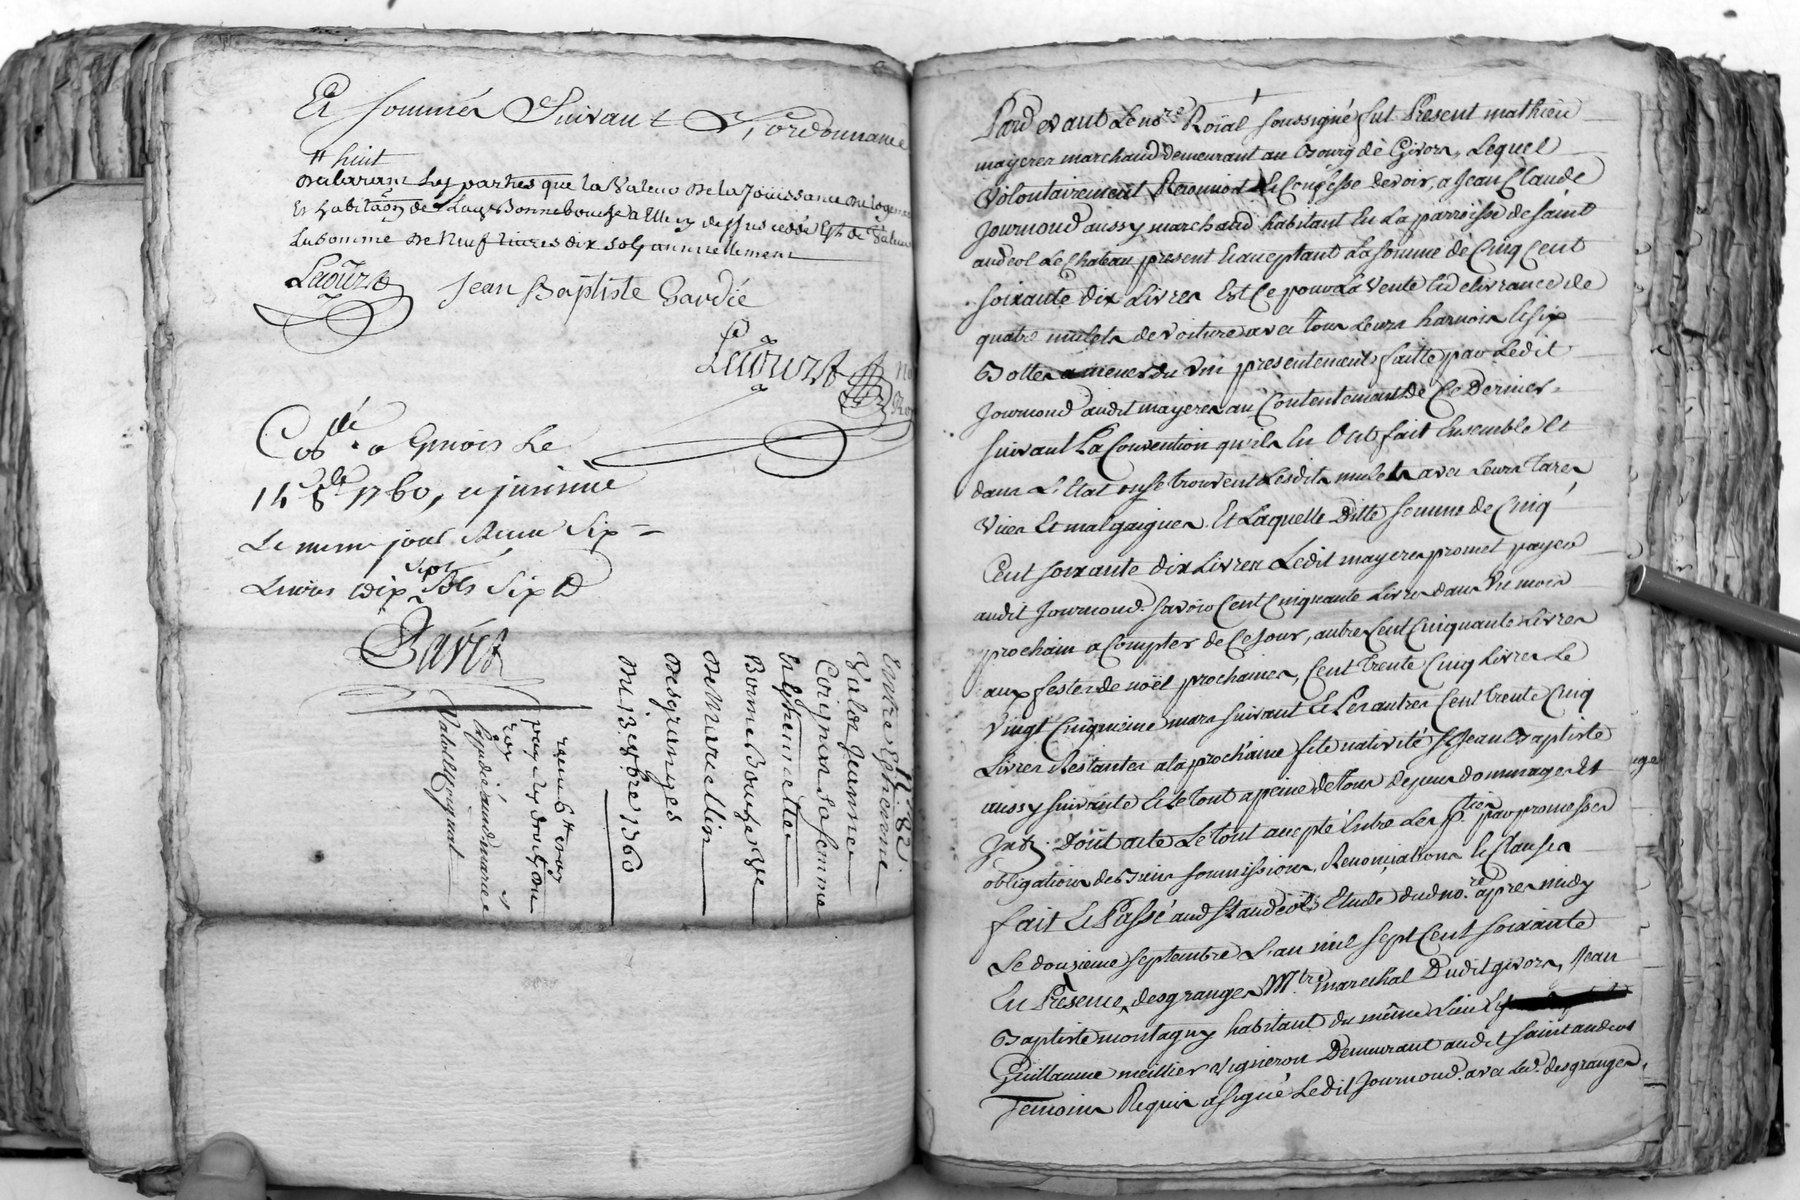 Et sommés Suivant L'ordonnance
# huit
declarant Les parties que la Valeur de la Jouissance du logement
Et habitaõn de Lad. Bonnebouche a Elle cy dessus cedée Est de Valeur
La somme de Neuf livres dix sols annuellement
Jean Baptiste Gardié
Collé a Givois Le
14 8bre 1760, et insinué
Le meme jour Receu six
Livres dix sept sols six d
N.º 82
Entre Ethienne
Valos Jeanne
Coignas sa femme
Et Ethiennette
Bonnebouche Ve
De Marcellin
Desgranges
Du 13e 7bre 1760
receu 6tt
Pardevant Le no.re Roïal soussigné fut Present mathieu
mayeres marchand demeurant au Bourg de Givors, Lequel
Volontairement Reconnoit Et Confesse devoir, a Jean Claude
Journoud aussy marchand habitant En La parroisse de saint
andeol Le Chateau present Et acceptant La somme de Cinq Cent
soixante dix Livres Est Ce pour La Vente Et delivrance de
quatre mulets de voiture avec Tous Leurs harnois Et six
Bottes a mener du vin presentement faitte par Ledit
Journoud audit mayeres au Contentement de Ce Dernier
suivant La Convention qu'ils En Ont fait Ensemble Et
dans L'Etat ou se trouvent Lesdits mulets avec Leurs Tares
Vices Et malgaignes. Et Laquelle Ditte somme de Cinq
Cent soixante dix Livres Ledit mayeres promet payer
audit Journoud. savoir Cent Cinquante Livres dans Un mois
prochain a Compter de Ce Jour, autres Cent Cinquante Livres
aux festes de noël prochaines, Cent trente Cinq Livres Le
Vingt Cinquieme mars suivant Et Les autres Cent trente Cinq
Livres Restantes a la prochaine fete nativité St Jean Baptiste
aussy suivante Et Le tout a peine de tous depens dommages Et
Jnts. Dont acte Le tout accepté Entre Les p.ties par promesses
obligations de Biens soumissions, Renonciations Et Clauses
fait Et Passé aud St andeol Etude dud no.re apres midy
Le douzieme septembre L'an mil sept Cent soixante
En Presence, desgranges M.tre marechal Dudit givors, Jean
Baptiste montagny habitant du même Lieu Et
Guillaume meillier vigneron Demeurant audit saint andeol
Temoins Requis a signé Ledit Journoud. avec Led. desgranges,